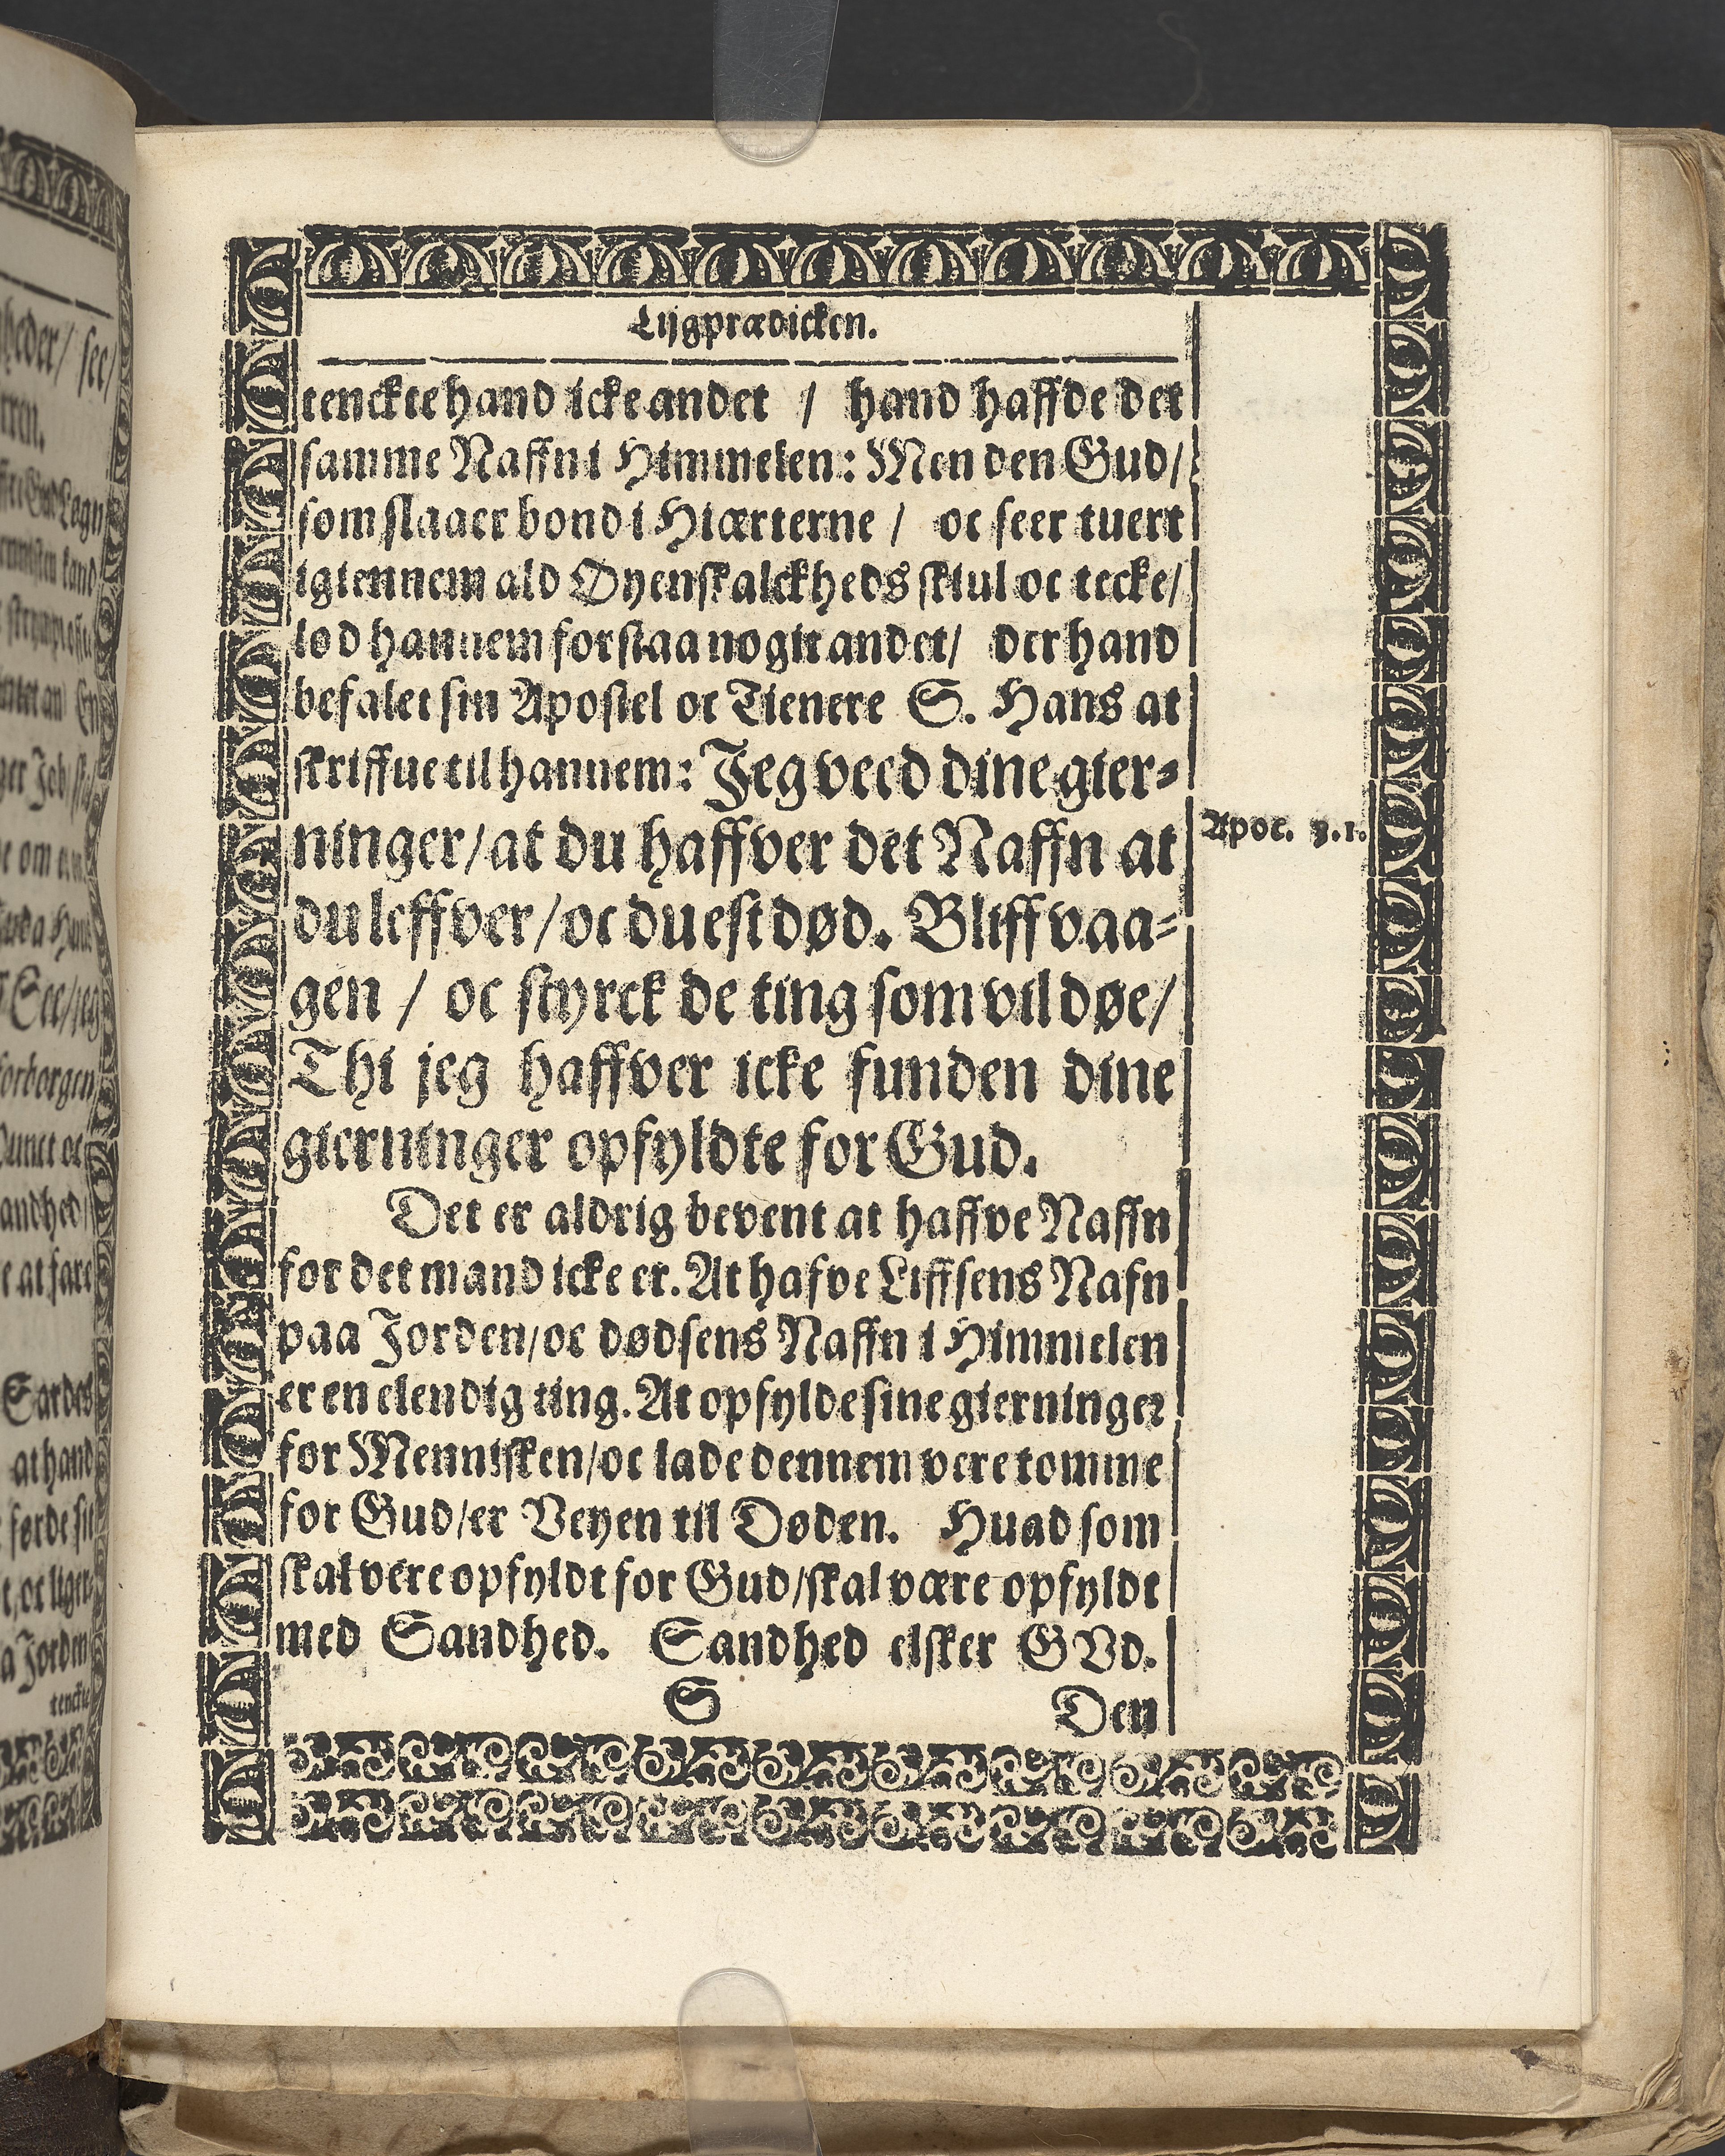 Lijgprædicken.
tenckte hand icke andet / hand haffde det
samme Naffn i Himmelen: Men den Gud/
som slaaer bond i Hiærterne / oc seer tuert
igiennem ald Øyenskalckheds skiul oc tecke/
lod hannem forstaa nogit andet/ der hand
befalet sin Apostel oc Tienere S. Hans at
skriffue til hannem: Jeg veed dine gier-
ninger/ at du haffver det Naffn at
Apoc. 3.1.
du leffver/ oc du est død. Bliff vaa-
gen / oc styrck de ting som vil døe/
Thi jeg haffver icke funden dine
gierninger opfyldte for Gud.
Det er aldrig bevent at haffve Naffn
for det mand icke er. At hafve Liffsens Nafn
paa Jorden/ oc dødsens Naffn i Himmelen
er en elendig ting. At opfylde sine gierninger
for Mennisken/ oc lade dennem vere tomme
for Gud/ er Veyen til Døden. Huad som
skal vere opfyldt for Gud/ skal være opfyldt
med Sandhed. Sandhed elsker GVd.
S Den
gheder/ see/
Sardes
at hand
førde sit
a Jorden
tenckte